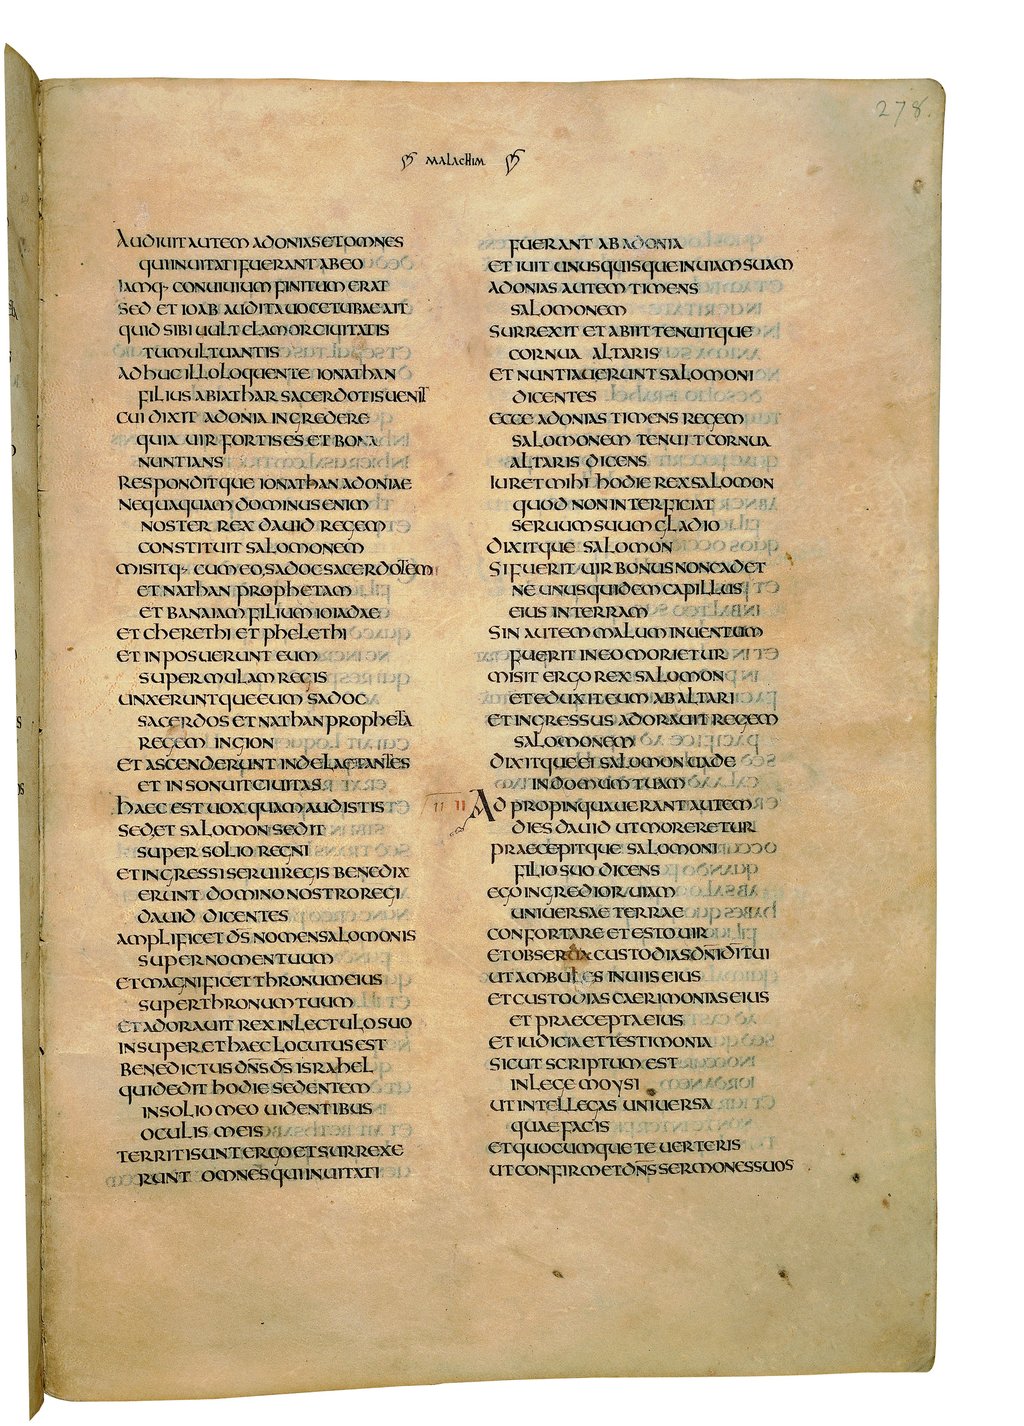 278.
MALACHIM
AUDIUIT AUTEM ADONIAS ET OMNES
QUI INUITATI FUERANT AB EO
IAMQ· CONUIUIUM FINITUM ERAT
SED ET IOAB AUDITA UOCE TUBAE AIT
QUID SIBI UULT CLAMOR CIUITATIS
TUMULTUANTIS
ADHUC ILLO LOQUENTE IONATHAN
FILIUS ABIATHAR SACERDOTIS UENIT
CUI DIXIT ADONIA INGREDERE
QUIA UIR FORTIS ES ET BONA
NUNTIANS
RESPONDITQUE IONATHAN ADONIAE
NEQUAQUAM DOMINUS ENIM
NOSTER REX DAUID REGEM
CONSTITUIT SALOMONEM
MISITQ· CUM EO SADOC SACERDOTEM
ET NATHAN PROPHETAM
ET BANAIAM FILIUM IOIADAE
ET CHERETHI ET PHELETHI
ET INPOSUERUNT EUM
SUPER MULAM REGIS
UNXERUNTQUE EUM SADOC
SACERDOS ET NATHAN PROPHETA
REGEM IN GION
ET ASCENDERUNT INDE LAETANTES
ET INSONUIT CIUITAS
HAEC EST UOX QUAM AUDISTIS
SED ET SALOMON SEDIT
SUPER SOLIO REGNI
ET INGRESSI SERUI REGIS BENEDIX
ERUNT DOMINO NOSTRO REGI
DAUID DICENTES
AMPLIFICET D̄S NOMEN SALOMONIS
SUPER NOMEN TUUM
ET MAGNIFICET THRONUM EIUS
SUPER THRONUM TUUM
ET ADORAUIT REX IN LECTULO SUO
INSUPER ET HAEC LOCUTUS EST
BENEDICTUS D̄N̄S D̄S ISRAHEL
QUI DEDIT HODIE SEDENTEM
IN SOLIO MEO UIDENTIBUS
OCULIS MEIS
TERRITI SUNT ERGO ET SURREXE
RUNT OMNES QUI INUITATI
FUERANT AB ADONIA
ET IUIT UNUSQUISQUE IN UIAM SUAM
ADONIAS AUTEM TIMENS
SALOMONEM
SURREXIT ET ABIIT TENUITQUE
CORNUA ALTARIS
ET NUNTIAUERUNT SALOMONI
DICENTES
ECCE ADONIAS TIMENS REGEM
SALOMONEM TENUIT CORNUA
ALTARIS DICENS
IURET MIHI HODIE REX SALOMON
QUOD NON INTERFICIAT
SERUUM SUUM GLADIO
DIXITQUE SALOMON
SI FUERIT UIR BONUS NON CADET
NE UNUS QUIDEM CAPILLUS
EIUS IN TERRAM
SIN AUTEM MALUM INUENTUM
FUERIT IN EO MORIETUR
MISIT ERGO REX SALOMON
ET EDUXIT EUM AB ALTARI
ET INGRESSUS ADORAUIT REGEM
SALOMONEM
DIXITQUE EI SALOMON UADE
IN DOMUM TUAM
II ADPROPINQUAUERANT AUTEM
DIES DAUID UT MORERETUR
PRAECEPITQUE SALOMONI
FILIO SUO DICENS
EGO INGREDIOR UIAM
UNIUERSAE TERRAE
CONFORTARE ET ESTO UIR
ET OBSERUA CUSTODIAS D̄N̄I D̄I TUI
UT AMBULES IN UIIS EIUS
ET CUSTODIAS CAERIMONIAS EIUS
ET PRAECEPTA EIUS
ET IUDICIA ET TESTIMONIA
SICUT SCRIPTUM EST
IN LEGE MOYSI
UT INTELLEGAS UNIUERSA
QUAE FACIS
ET QUOCUMQUE TE UERTERIS
UT CONFIRMET D̄N̄S SERMONES SUOS